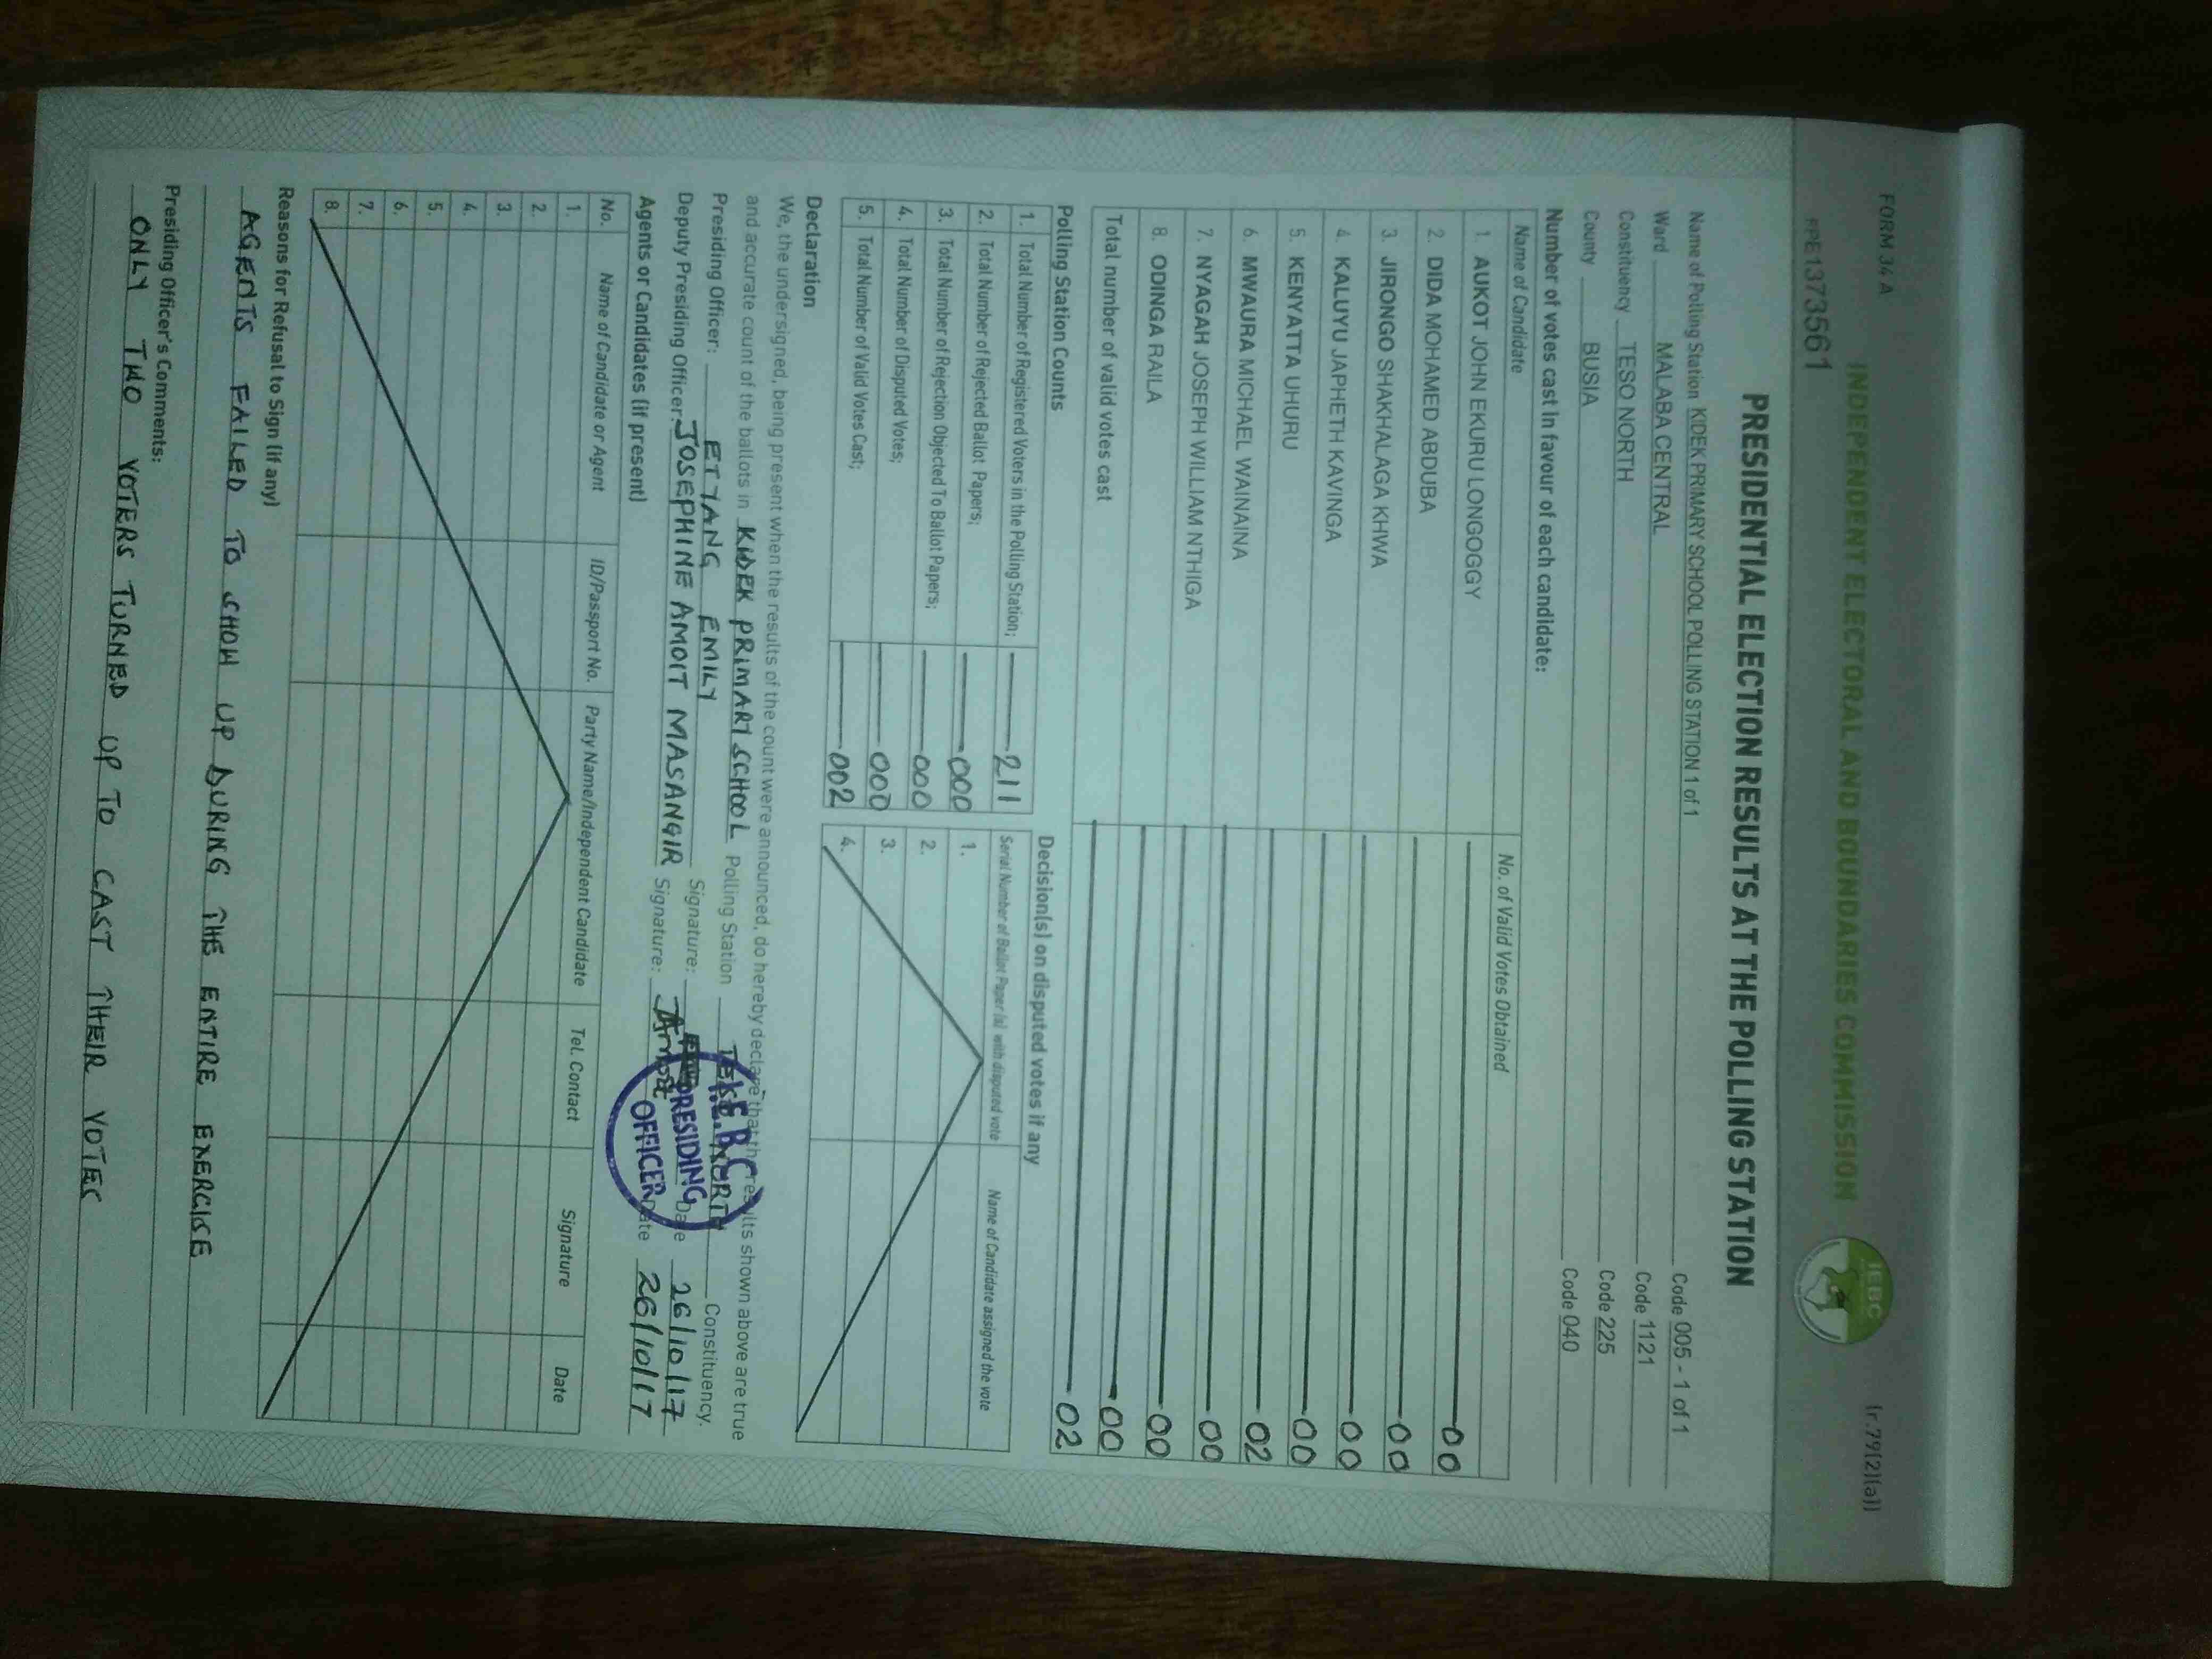 FORM 34 A
(r.79(2)(a))
INDEPENDENT ELECTORAL AND BOUNDARIES COMMISSION
IEBC
PE1373561
PRESIDENTIAL ELECTION RESULTS AT THE POLLING STATION
Name of Polling Station KIDEK PRIMARY SCHOOL POLLING STATION 1 of 1 Code 005 - 1 of 1
Ward MALABA CENTRAL Code 1121
Constituency TESO NORTH Code 225
County BUSIA Code 040
Number of votes cast in favour of each candidate:
Name of Candidate No. of Valid Votes Obtained
1. AUKOT JOHN EKURU LONGOGGY 00
2. DIDA MOHAMED ABDUBA 00
3. JIRONGO SHAKHALAGA KHWA 00
4. KALUYU JAPHETH KAVINGA 00
5. KENYATTA UHURU 02
6. MWAURA MICHAEL WAINAINA 00
7. NYAGAH JOSEPH WILLIAM NTHIGA 00
8. ODINGA RAILA 00
Total number of valid votes cast 02
Polling Station Counts
1. Total Number of Registered Voters in the Polling Station; 211
2. Total Number of Rejected Ballot Papers; 000
3. Total Number of Rejection Objected To Ballot Papers; 000
4. Total Number of Disputed Votes; 000
5. Total Number of Valid Votes Cast; 002
Decision(s) on disputed votes if any
Serial Number of Ballot Paper (s) with disputed vote Name of Candidate assigned the vote
1.
2.
3.
4.
Declaration
We, the undersigned, being present when the results of the count were announced, do hereby declare that the results shown above are true
and accurate count of the ballots in KIDEK PRIMARY SCHOOL Polling Station TESO NORTH Constituency.
Presiding Officer: ETYANG EMILY Signature: Date 26/10/17
Deputy Presiding Officer: JOSEPHINE AMOIT MASANGIR Signature: Amoit Date 26/10/17
I.E.B.C
PRESIDING
OFFICER
Agents or Candidates (if present)
No. Name of Candidate or Agent ID/Passport No. Party Name/Independent Candidate Tel. Contact Signature Date
1.
2.
3.
4.
5.
6.
7.
8.
Reasons for Refusal to Sign (if any)
AGENTS FAILED TO SHOW UP DURING THE ENTIRE EXERCISE
Presiding Officer's Comments:
ONLY TWO VOTERS TURNED UP TO CAST THEIR VOTES